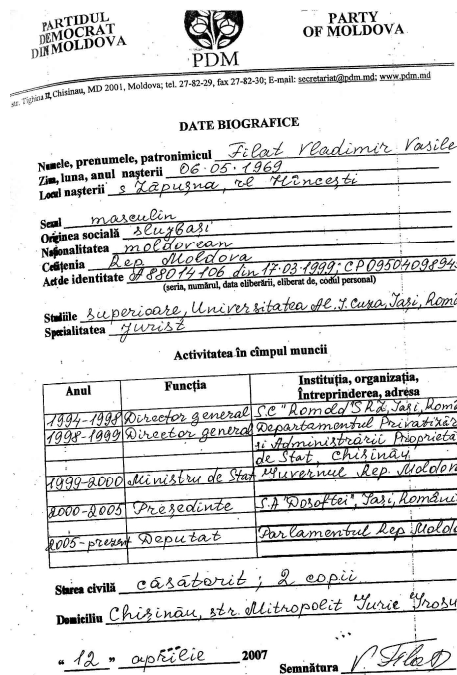 PARTIDUL
DEMOCRAT
DIN MOLDOVA
PDM
PARTY
OF MOLDOVA
str. Tighina Chisinau, MD 2001, Moldova; tel. 27-82-29, fax 27-82-30; E-mail: secretariat@pdm.md; www.pdm.md
DATE BIOGRAFICE
Numele, prenumele, patronimicul Filat Vladimir Vasile
Ziua, luna, anul nașterii 06.05.1969
Locul nașterii s Lăpușna, rl Hîncești
Sexul masculin
Originea socială slujbași
Naționalitatea moldovean
Cetățenia Rep Moldova
Act de identitate A 88014106 din 17.03.1999; CP 095040989
(seria, numărul, data eliberării, eliberat de, codul personal)
Studiile superioare, Universitatea Al. I. Cuza, Iași, Rom
Specialitatea jurist
Activitatea în cîmpul muncii
Anul Funcția Instituția, organizația,
Întreprinderea, adresa
1994-1998 Director general S.C "Romold" SRL, Iași, Româ
1998-1999 Director general Departamentul Privatizăr
și Administrării Proprietă
de Stat, Chisinău
1999-2000 Ministru de Stat Guvernul Rep. Moldov
2000-2005 Președinte S.A "Dosoftei", Iași, Români
2005-prezent Deputat Parlamentul Rep Moldo
Starea civilă căsătorit; 2 copii
Domiciliu Chișinău, str. Mitropolit Iurie Grosu
"12" aprilie 2007
Semnătura V. Filat